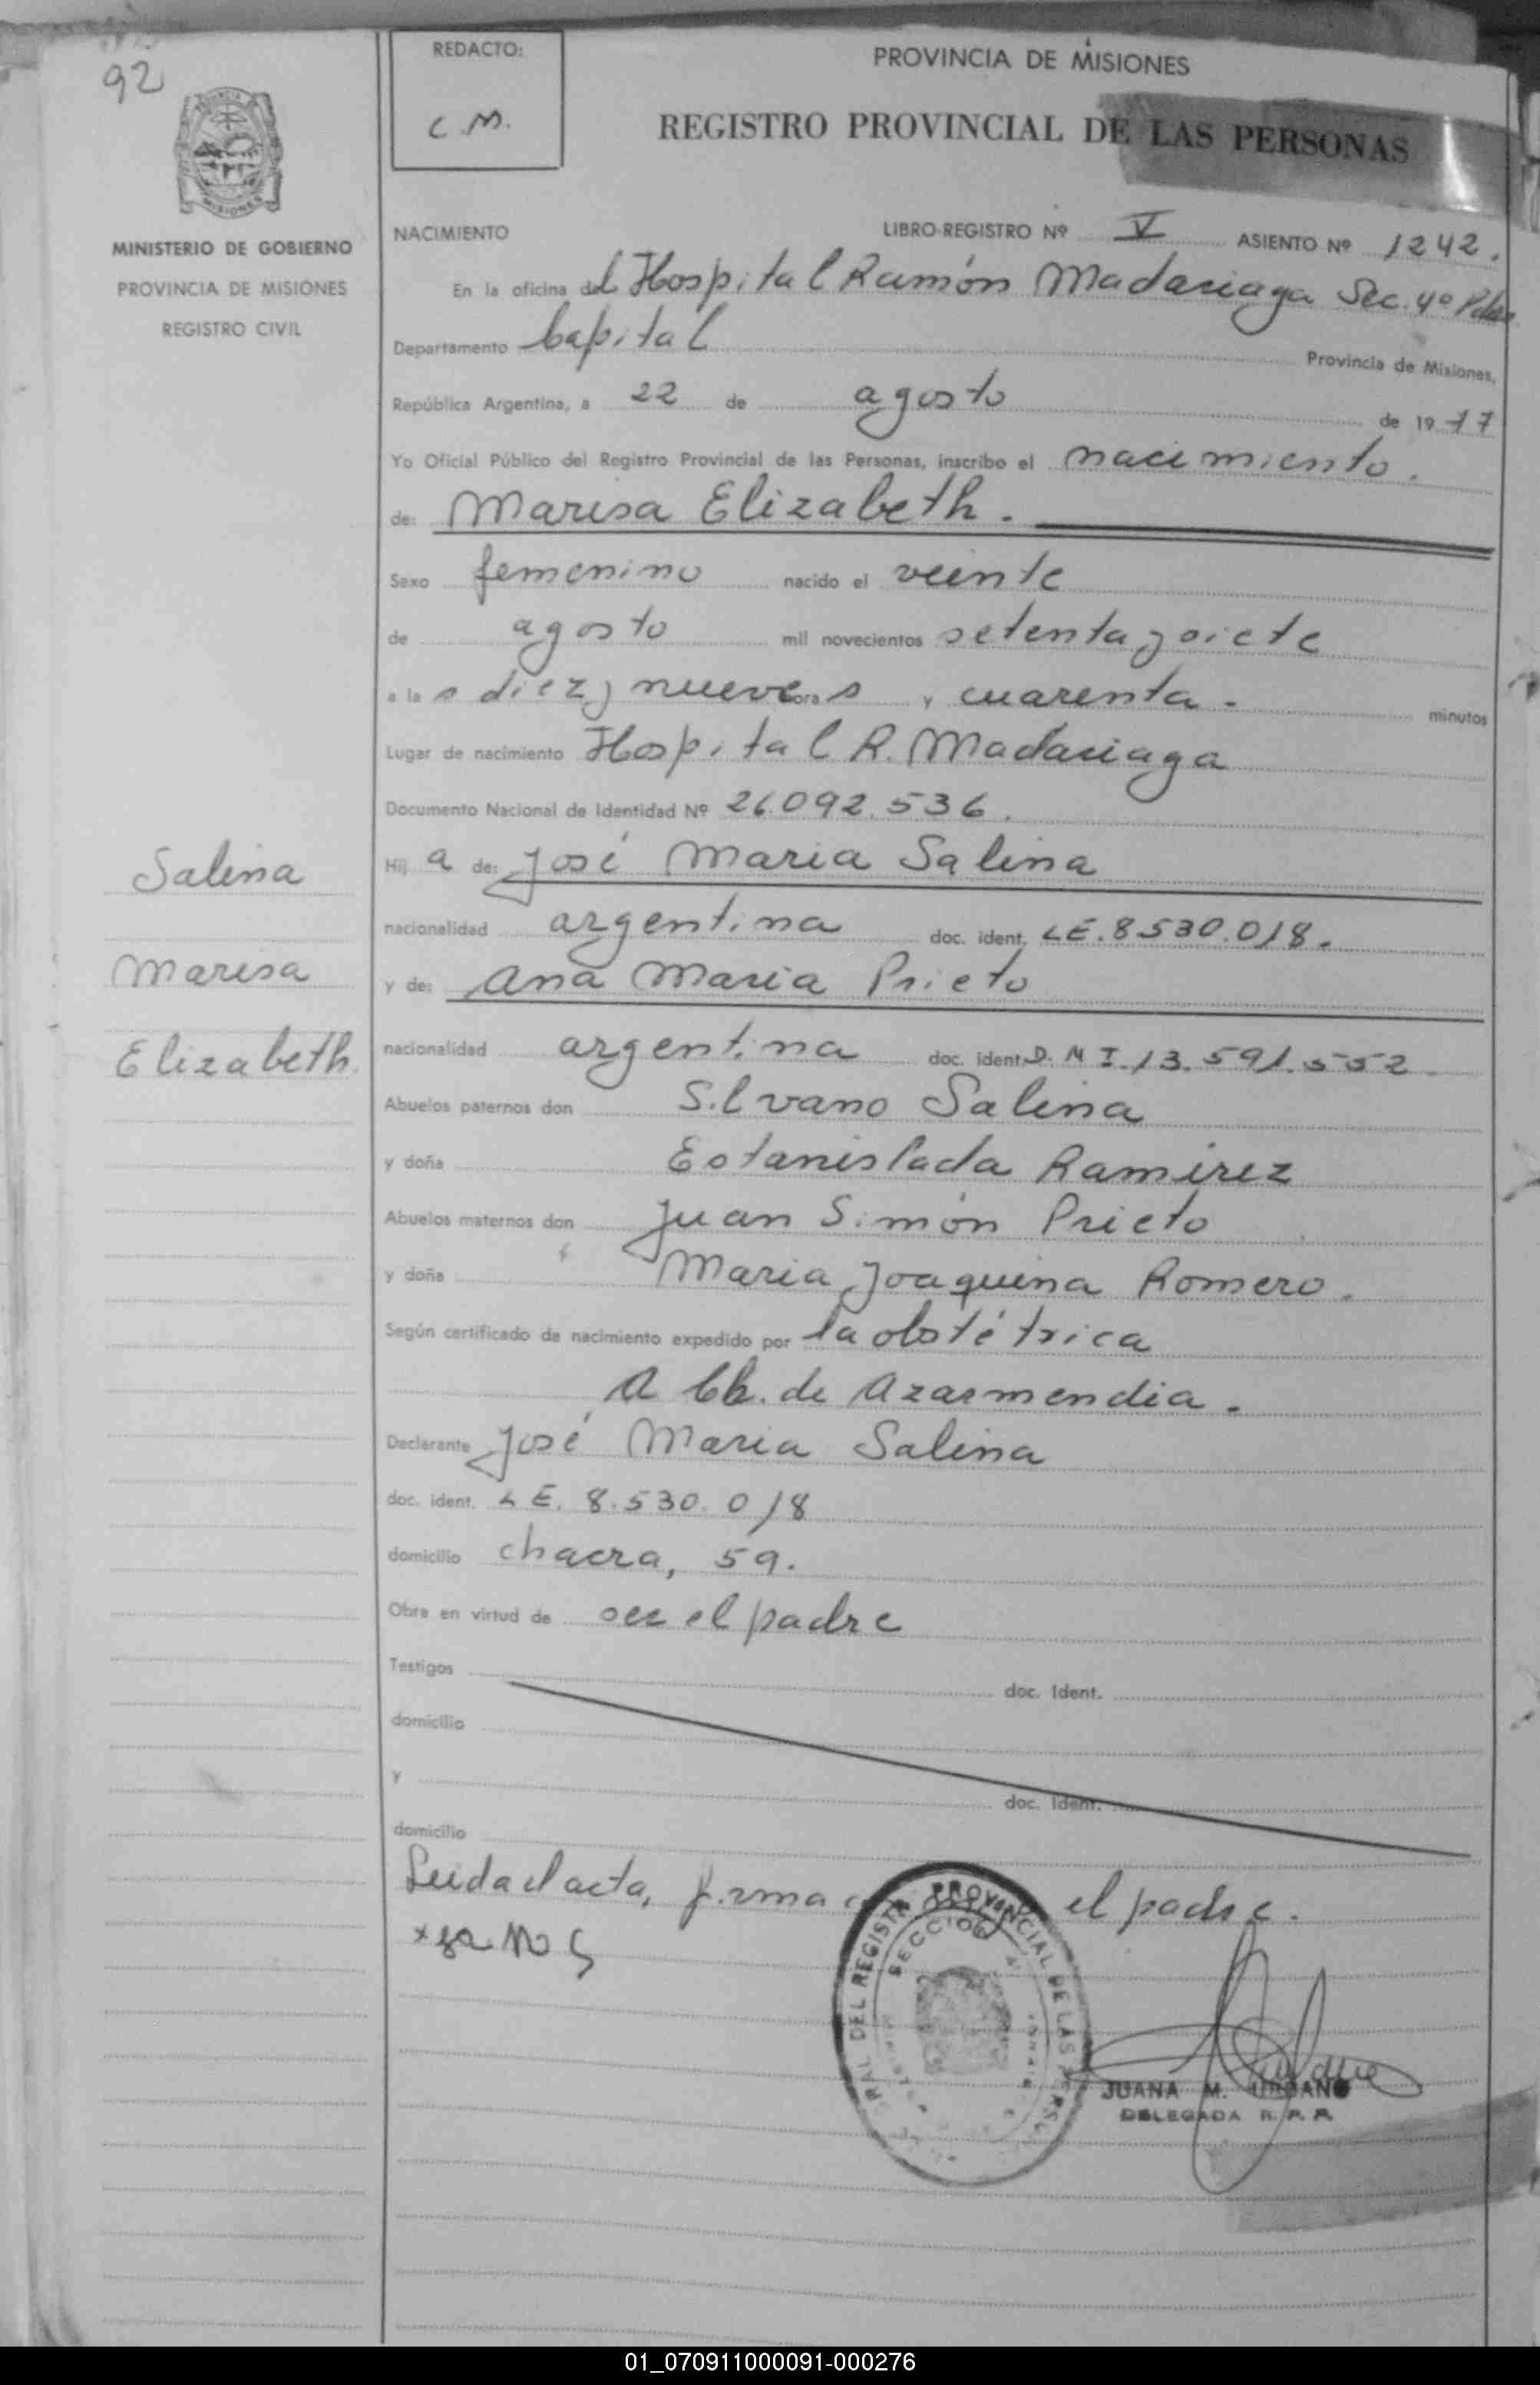 92
PROVINCIA DE
MISIONES
MINISTERIO DE GOBIERNO
PROVINCIA DE MISIONES
REGISTRO CIVIL
Salina
Marisa
Elizabeth.
REDACTO:
C M.
PROVINCIA DE MISIONES
REGISTRO PROVINCIAL DE LAS PERSONAS
NACIMIENTO LIBRO-REGISTRO Nº V ASIENTO Nº 1242.
En la oficina del Hospital Ramón Madariaga Sec. 4º
Departamento Capital Provincia de Misiones,
República Argentina, a 22 de agosto de 1977
Yo Oficial Público del Registro Provincial de las Personas, inscribo el nacimiento.
de: Marisa Elizabeth.
Sexo femenino nacido el veinte
de agosto mil novecientos setenta y siete
a las diez y nueve horas y cuarenta - minutos
Lugar de nacimiento Hospital R. Madariaga
Documento Nacional de Identidad Nº 26.092.536.
Hija de: José Maria Salina
nacionalidad argentina doc. ident. LE. 8.530.018.
y de: Ana Maria Prieto
nacionalidad argentina doc. ident. D.N.I. 13.591.552
Abuelos paternos don Silvano Salina
y doña Estanislada Ramirez
Abuelos maternos don Juan Simón Prieto
y doña Maria Joaquina Romero.
Según certificado de nacimiento expedido por la obstétrica
A Ch. de Azarmendia.
Declarante José Maria Salina
doc. ident. LE. 8.530.018
domicilio chacra, 59.
Obra en virtud de ser el padre
Testigos doc. Ident.
domicilio
y doc. Ident.
domicilio
Leida el acta, firma el padre.
PROVINCIAL DE LAS
DEL REGISTRO
SECCION
JUANA M. URBANO
DELEGADA R. P. P.
01_070911000091-000276